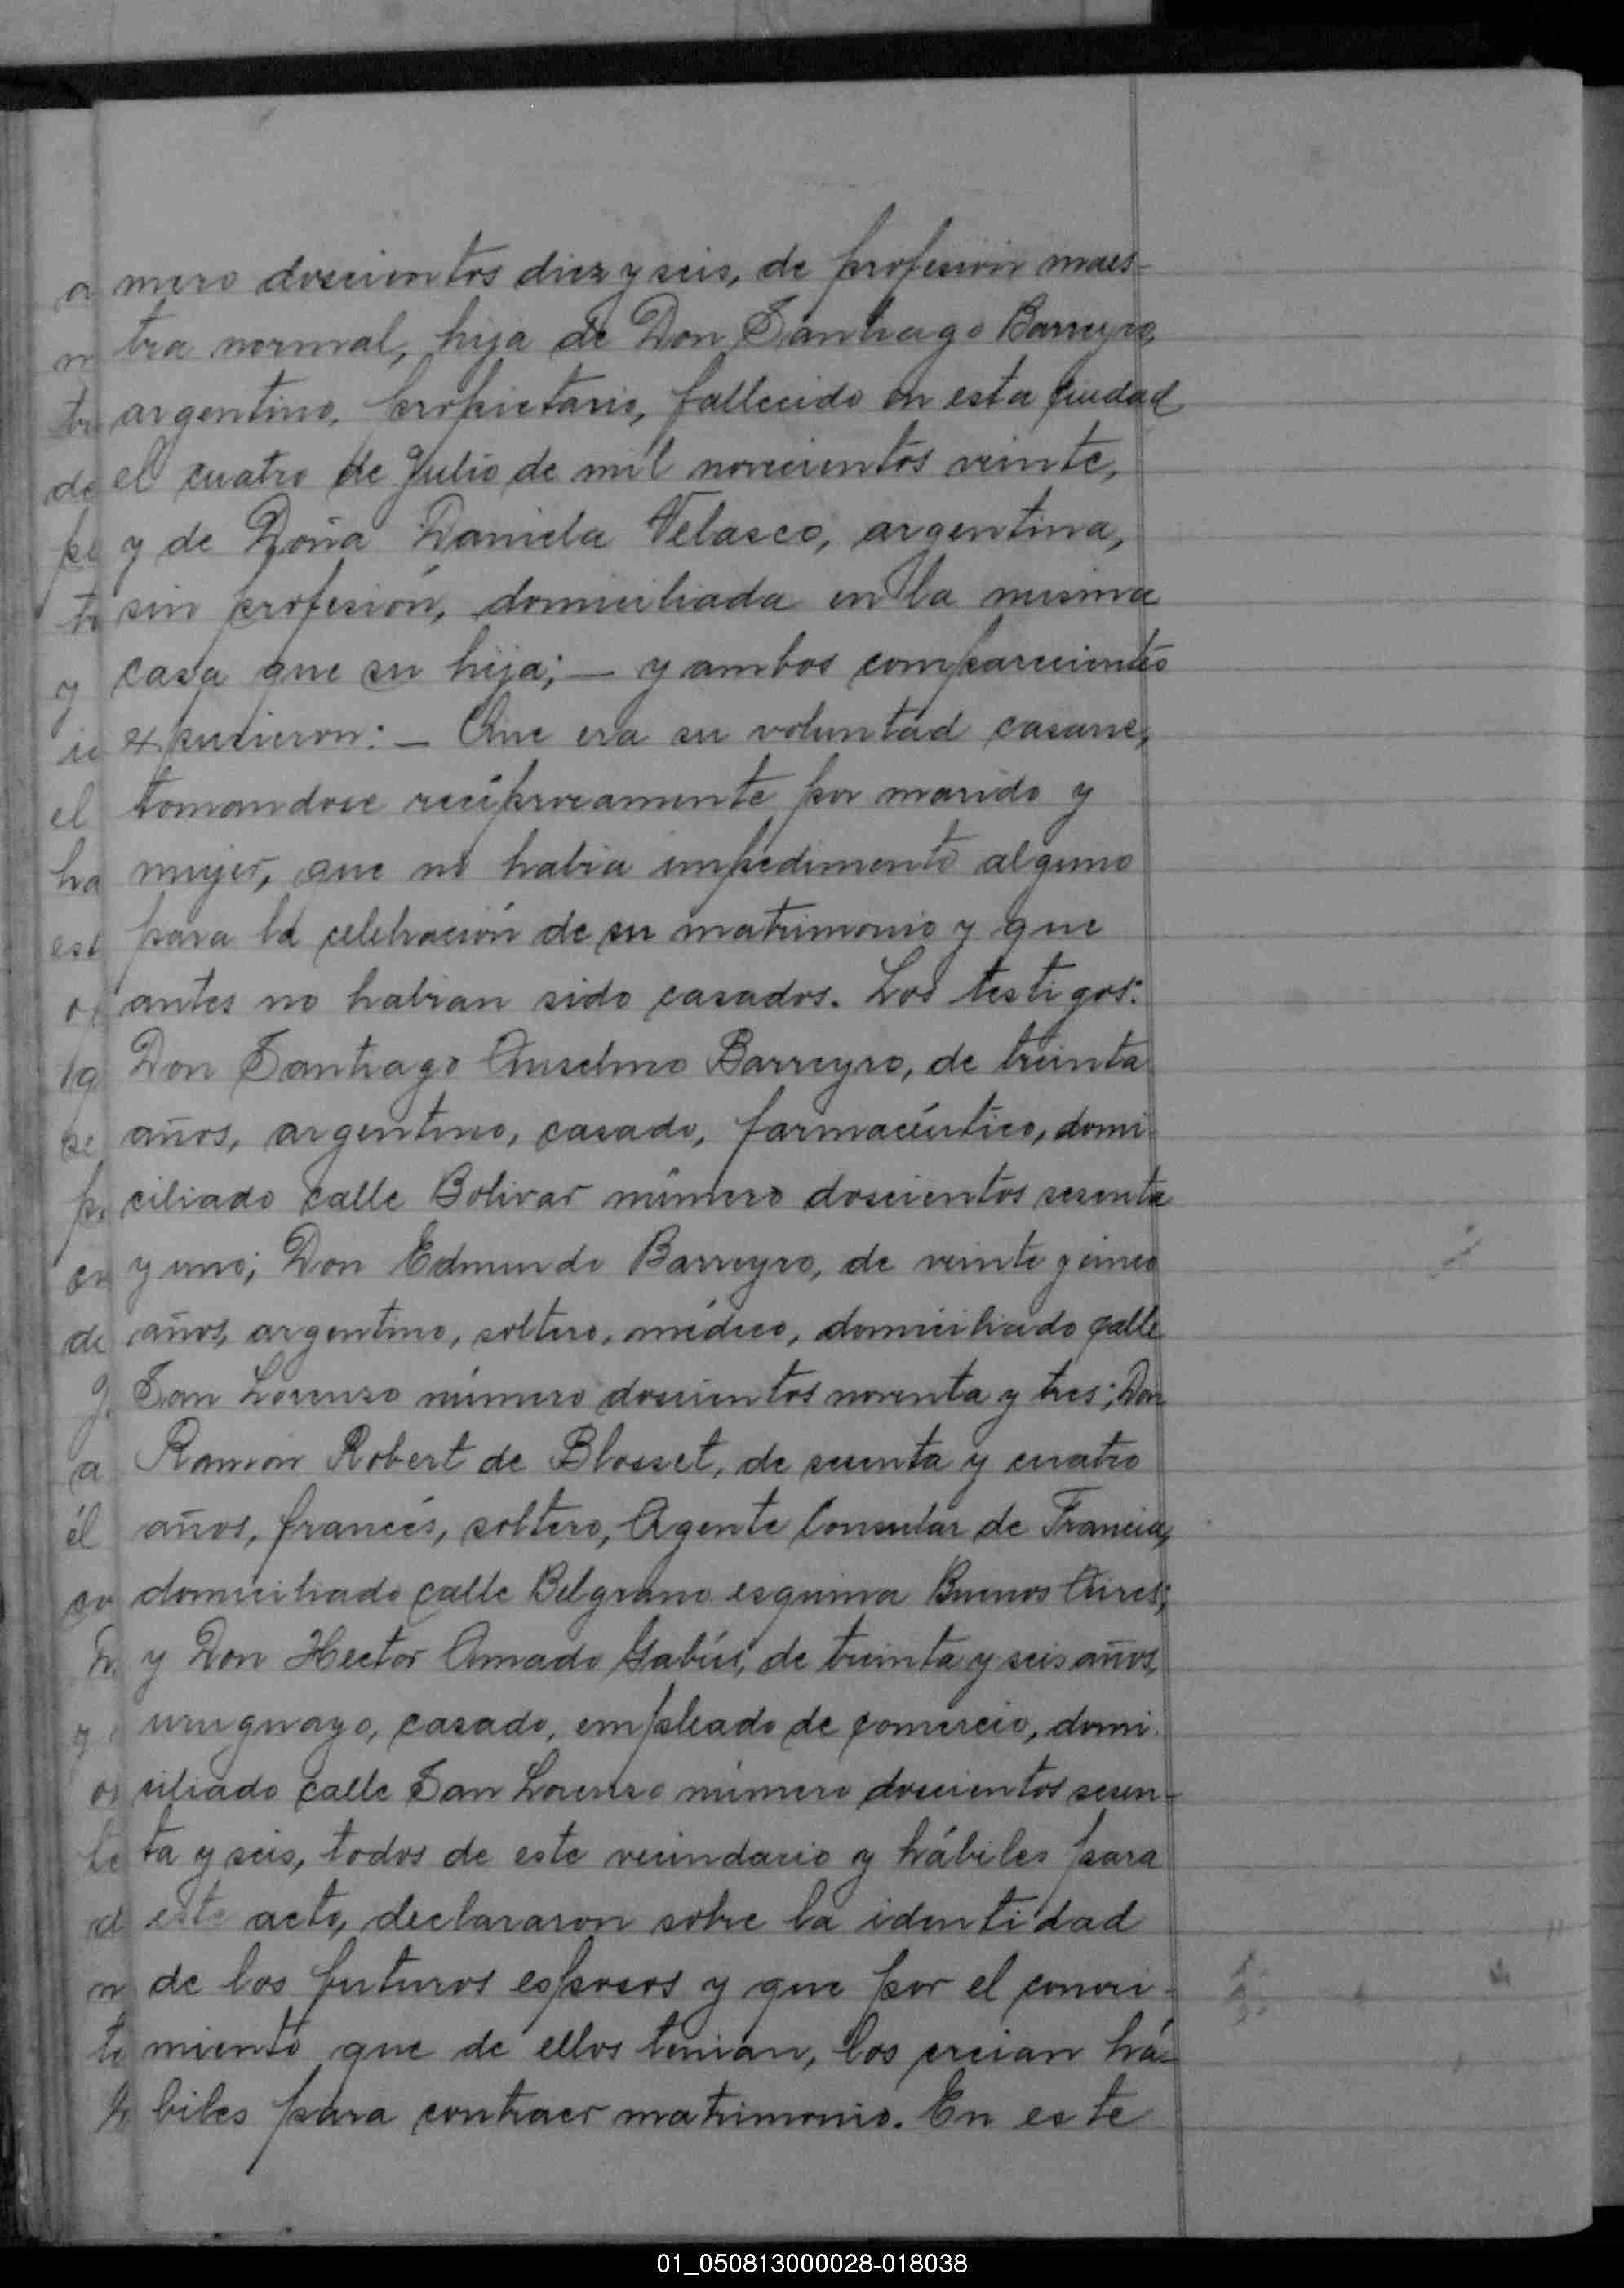 mero doscientos diez y seis, de profesión maes-
tra normal, hija de Don Santiago Barreyro,
argentino, propietario, fallecido en esta ciudad
el cuatro de Julio de mil novecientos veinte,
y de Doña Daniela Velasco, argentina,
sin profesión, domiciliada en la misma
casa que su hija; — y ambos comparecientes
expusieron: — Que era su voluntad casarse,
tomandose recíprocamente por marido y
mujer, que no habia impedimento alguno
para la celebración de su matrimonio y que
antes no habian sido casados. Los testigos:
Don Santiago Anselmo Barreyro, de treinta
años, argentino, casado, farmacéutico, domi-
ciliado calle Bolivar número doscientos sesenta
y uno; Don Edmundo Barreyro, de veinte y cinco
años, argentino, soltero, médico, domiciliado calle
San Lorenzo número doscientos noventa y tres; Don
Ramón Robert de Blosset, de sesenta y cuatro
años, francés, soltero, Agente Consular de Francia,
domiciliado calle Belgrano esquina Buenos Aires;
y Don Hector Amado de treinta y seis años,
uruguayo, casado, empleado de comercio, domi-
ciliado calle San Lorenzo número doscientos sesen-
ta y seis, todos de este vecindario y hábiles para
este acto, declararon sobre la identidad
de los futuros esposos y que por el conoci-
miento que de ellos tenian, los creian há-
biles para contraer matrimonio. En este
01_050813000028-018038